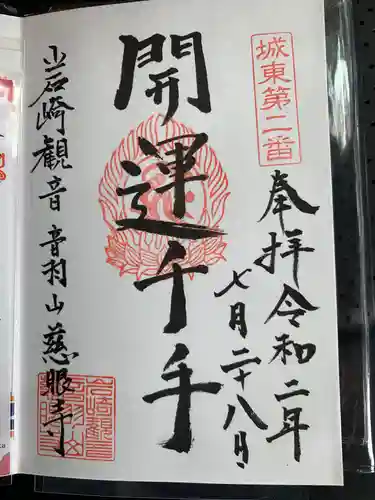 城東第二番
奉拝令和二年
七月二十八日
開運千手
岩崎観音音羽山慈眼寺